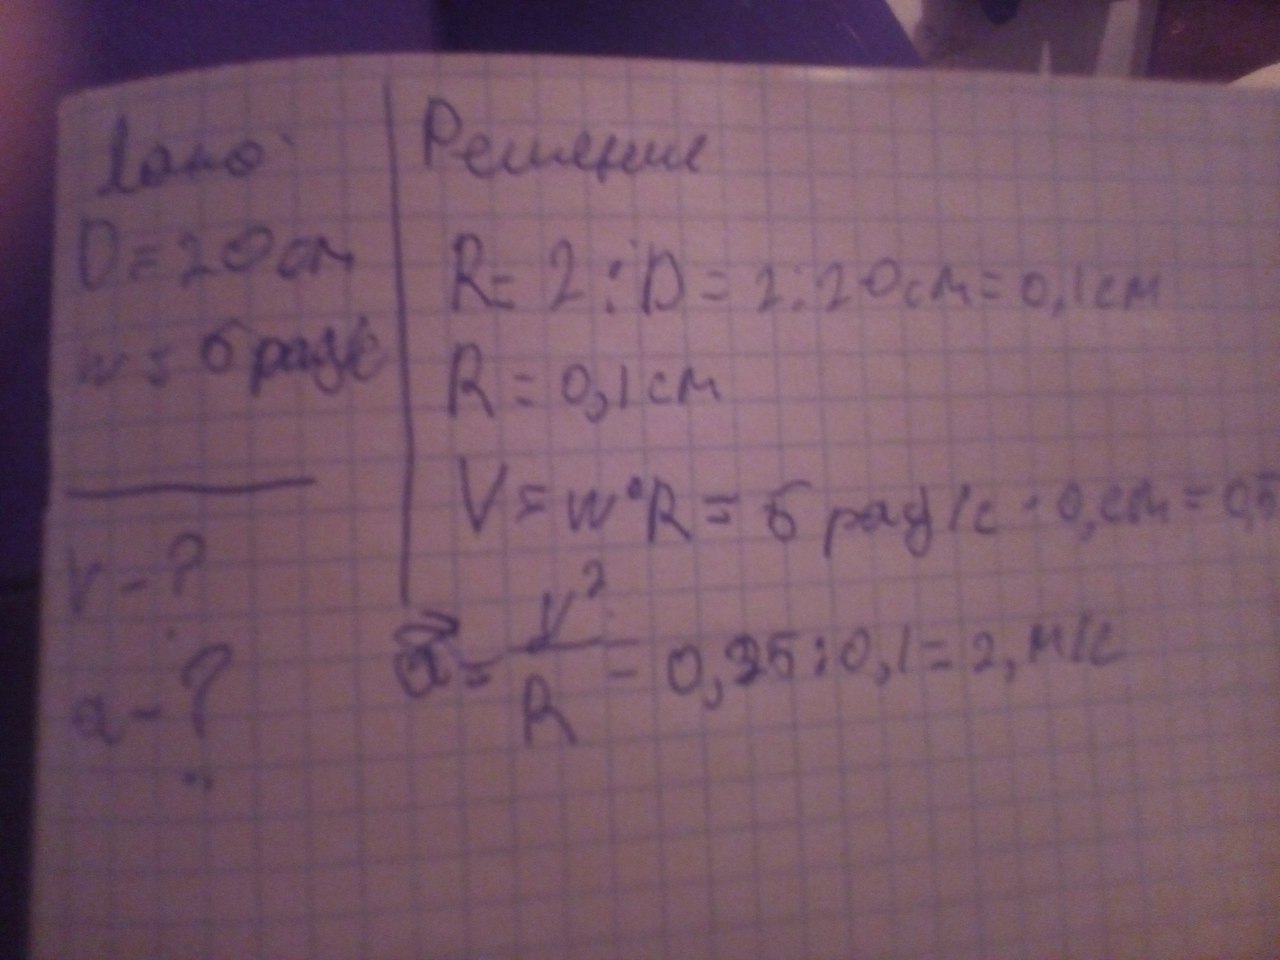 Дано
D = 20 см
w = 5 рад/с
v - ?
a - ?
Решение
R = 2 : D = 2 : 20 см = 0,1 см
R = 0,1 см
V = w • R = 5 рад/с · 0, см = 0,5
a = V² / R = 0,25 : 0,1 = 2, м/с